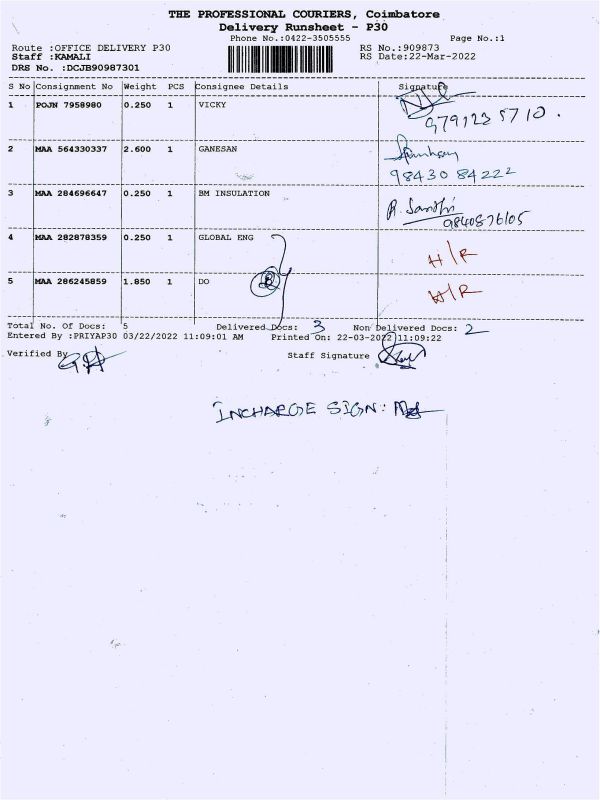 THE PROFESSIONAL COURIERS, Coimbatore
Delivery Runsheet - P30
Phone No.:0422-3505555 Page No.:1
Route :OFFICE DELIVERY P30 RS No.:909873
Staff :KAMALI RS Date:22-Mar-2022
DRS No. :DCJB90987301
S No Consignment No Weight PCS Consignee Details Signature
1 POJN 7958980 0.250 1 VICKY
9791235710.
2 MAA 564330337 2.600 1 GANESAN
98430 84222
3 MAA 284696647 0.250 1 BM INSULATION
9840876105
4 MAA 282878359 0.250 1 GLOBAL ENG H/R
5 MAA 286245859 1.850 1 DO H/R
Total No. Of Docs: 5 Delivered Docs: 3 Non Delivered Docs: 2
Entered By :PRIYAP30 03/22/2022 11:09:01 AM Printed On: 22-03-2022 11:09:22
Verified By Staff Signature
INCHARGE SIGN: